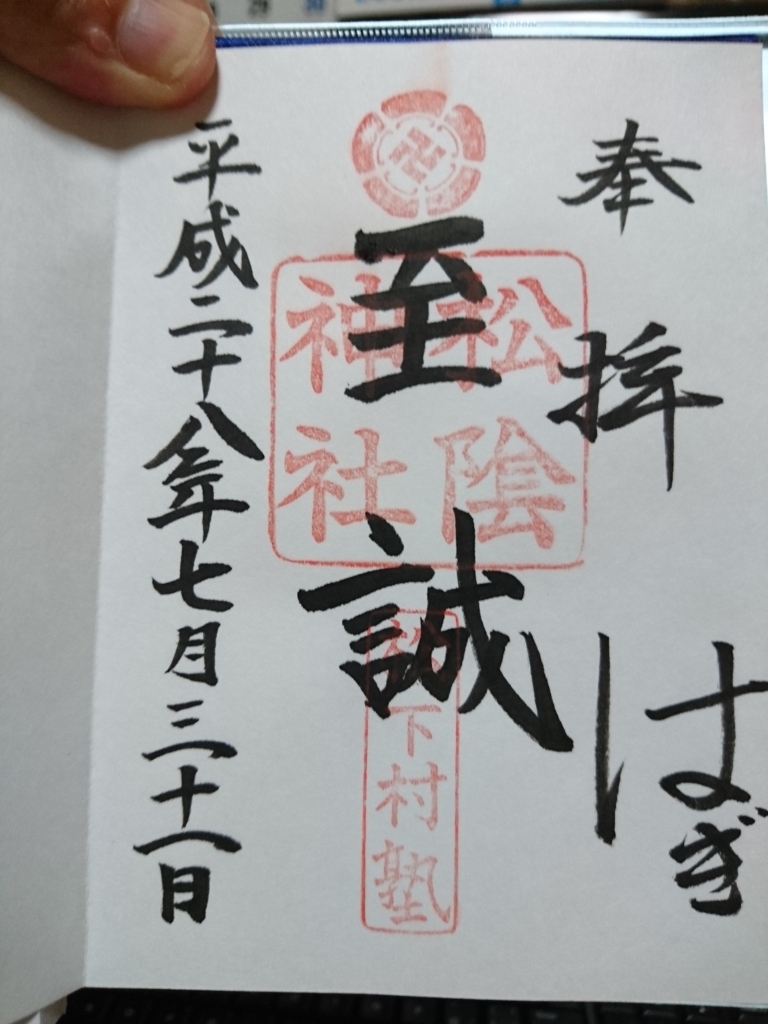 奉拝
はぎ
至誠
松陰
神社
松下村塾
平成二十八年七月三十一日